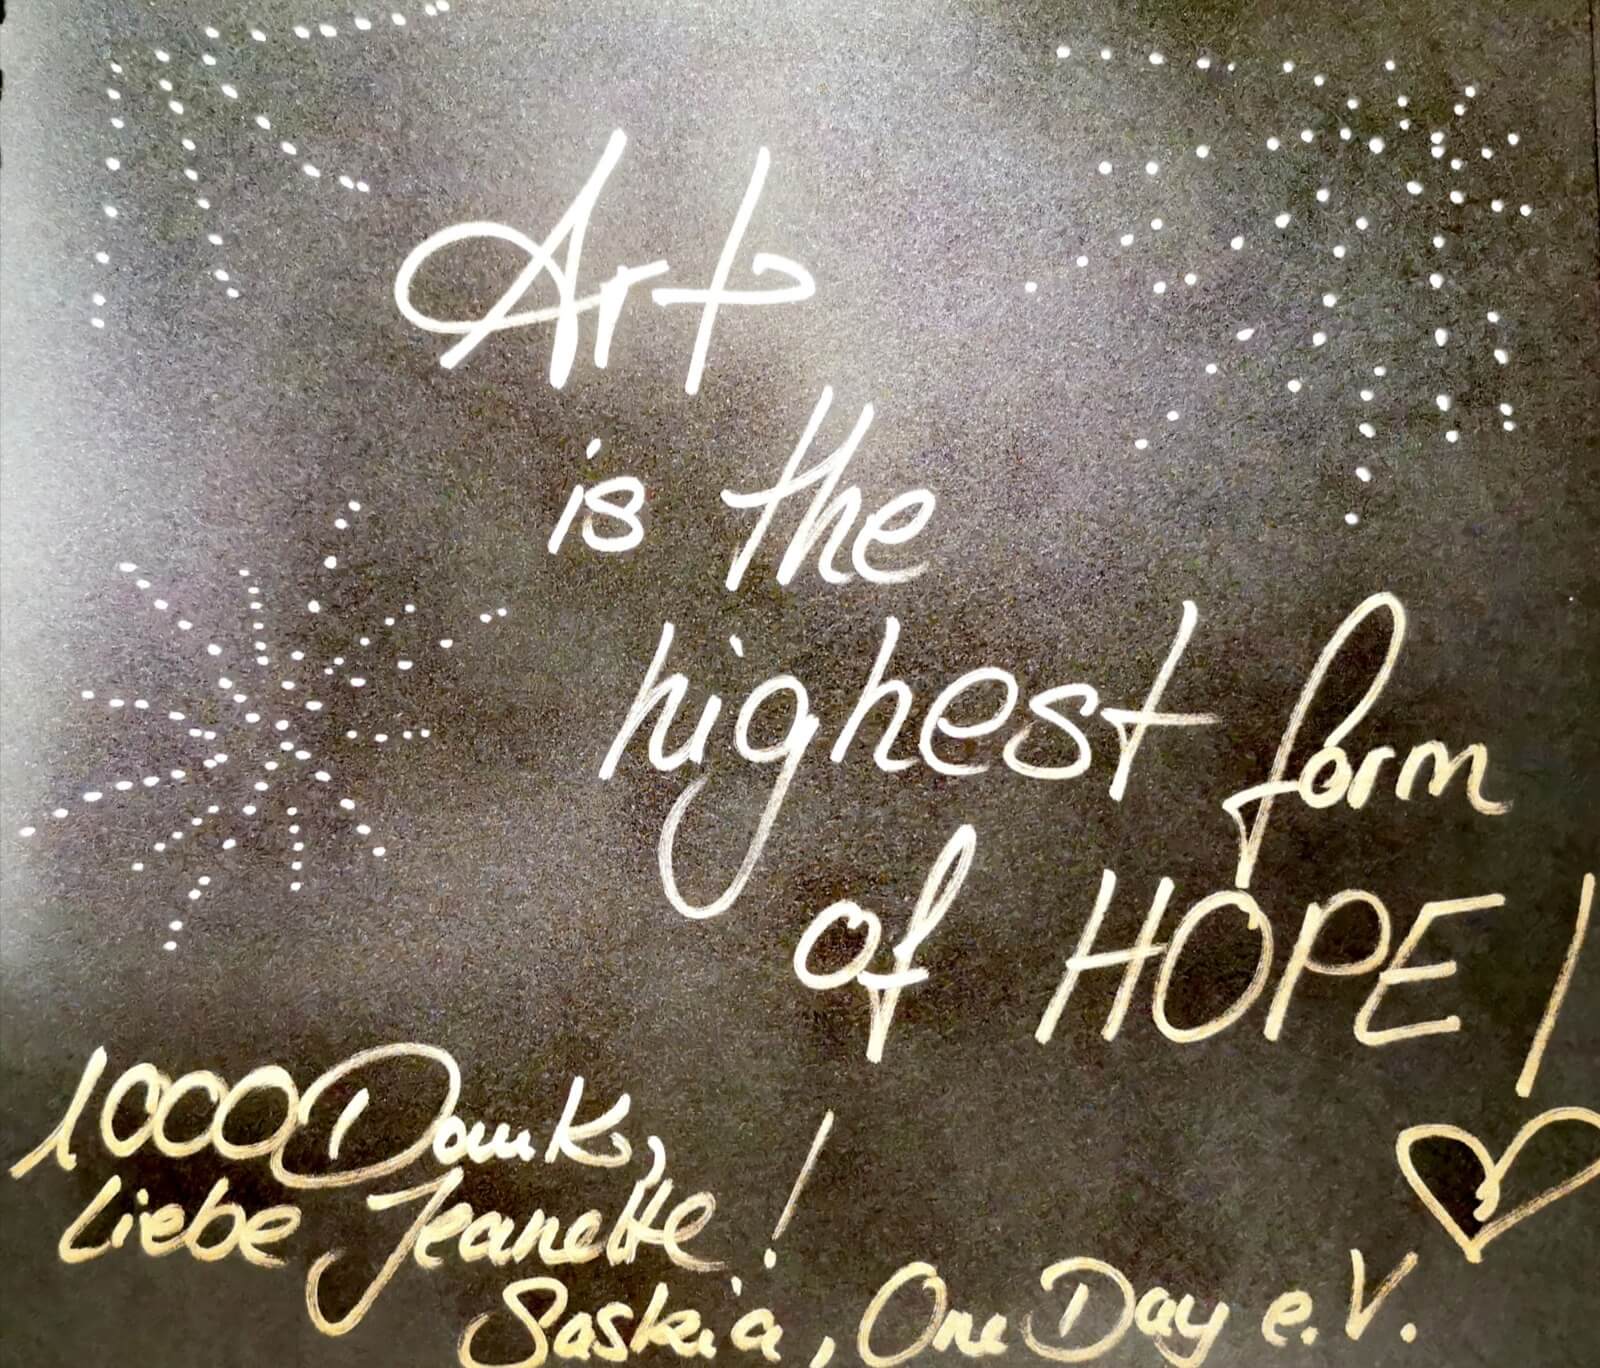 Art
is the
highest form
of HOPE!
1000 Dank,
liebe Jeanette!
Saskia, One Day e.V.